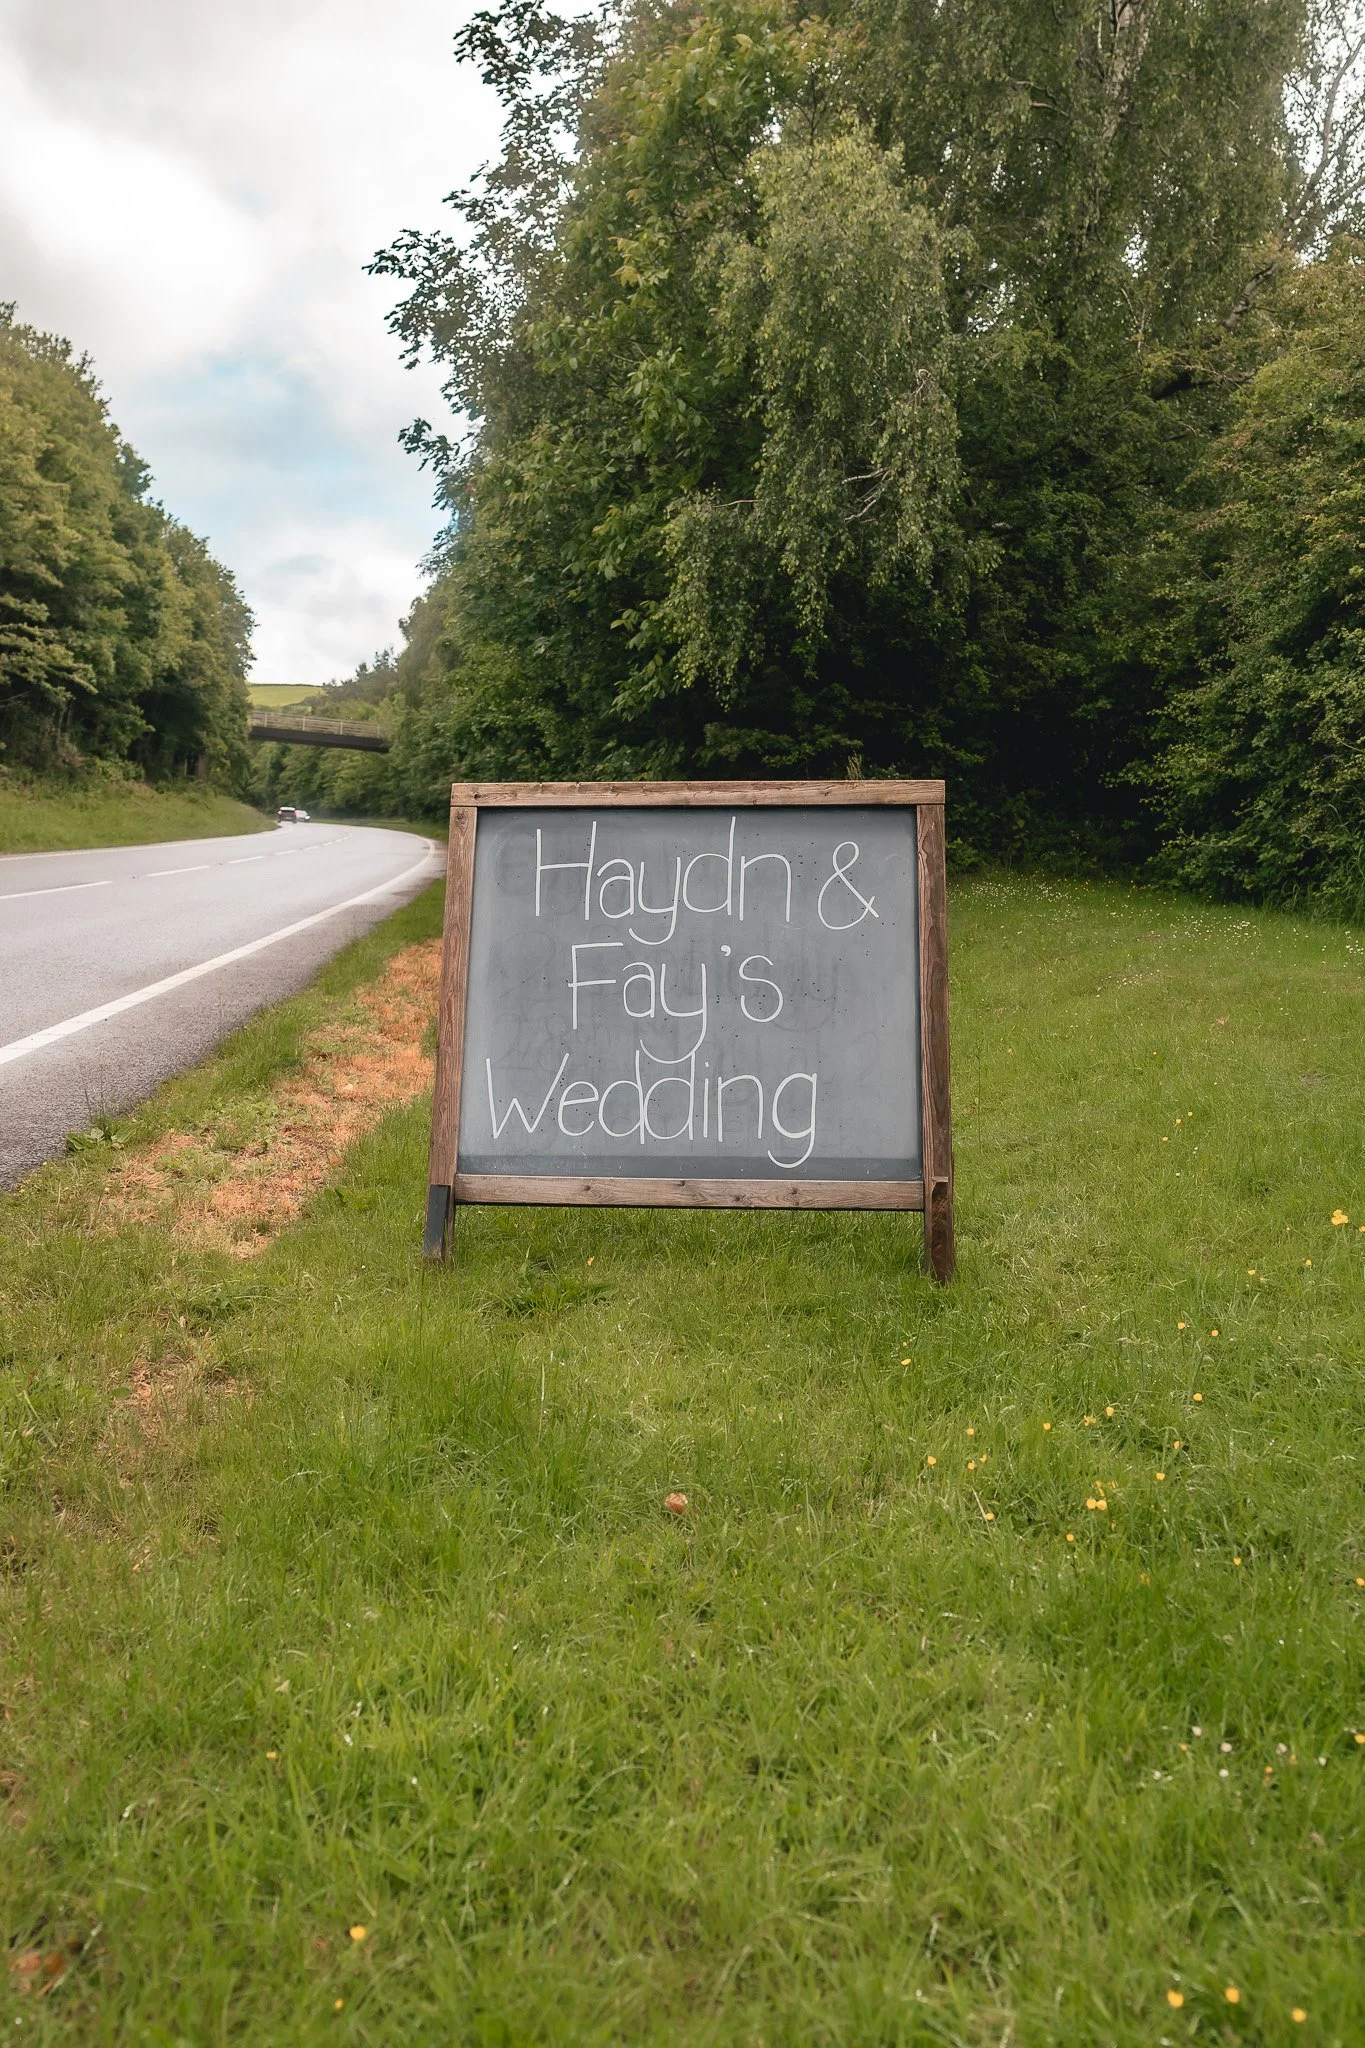 Haydn &
Fay's
Wedding